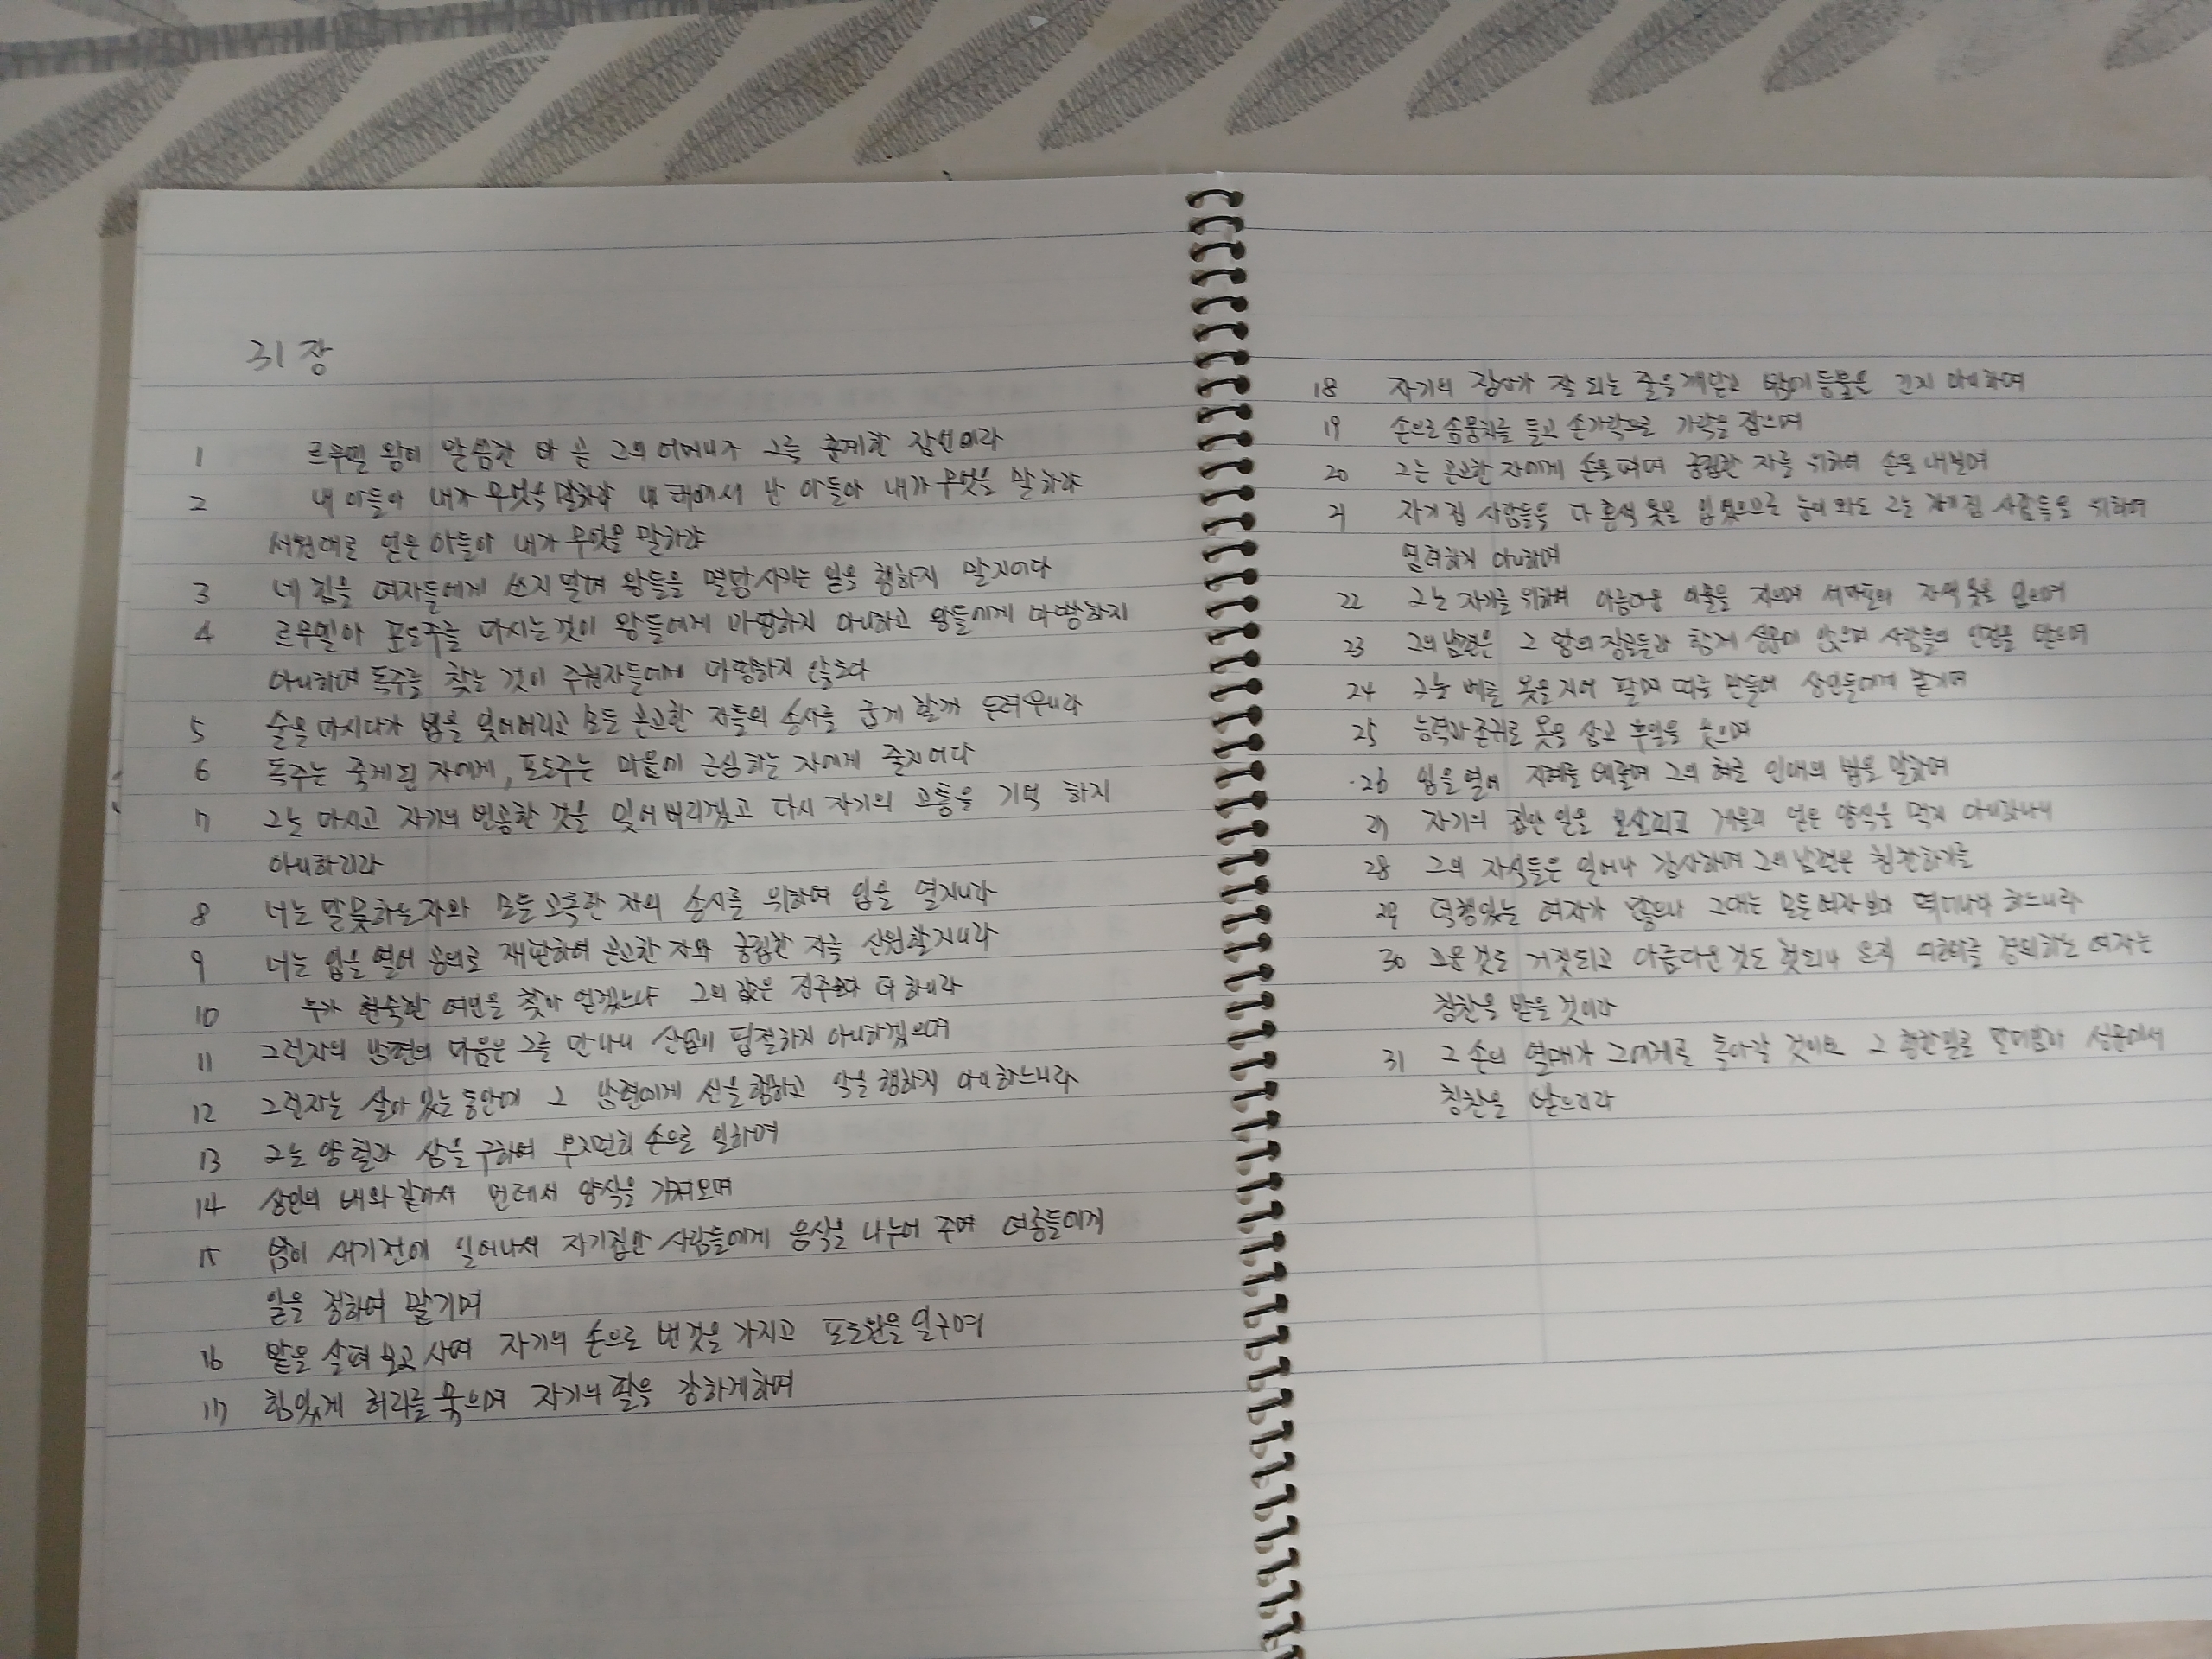 31장
1 르무엘 왕이 말씀한 바 곧 그의 어머니가 그를 훈계한 잠언이라
2 내 아들아 내가 무엇을 말하랴 내 태에서 난 아들아 내가 무엇을 말하랴
서원대로 얻은 아들아 내가 무엇을 말하랴
3 네 힘을 여자들에게 쓰지 말며 왕들을 멸망시키는 일을 행하지 말지어다
4 르무엘아 포도주를 마시는것이 왕들에게 마땅하지 아니하고 왕들에게 마땅하지
아니하며 독주를 찾는 것이 주권자들에게 마땅하지 않도다
5 술을 마시다가 법을 잊어버리고 모든 곤고한 자들의 송사를 굽게 할까 두려우니라
6 독주는 죽게된 자에게, 포도주는 마음에 근심하는 자에게 줄지어다
7 그는 마시고 자기의 빈궁한 것을 잊어버리겠고 다시 자기의 고통을 기억 하지
아니하리라
8 너는 말못하는자와 모든 고독한 자의 송사를 위하여 입을 열지니라
9 너는 입을 열어 공의로 재판하여 곤고한 자와 궁핍한 자를 신원할지니라
10 누가 현숙한 여인을 찾아 얻겠느냐 그의 값은 진주보다 더 하니라
11 그런자의 남편의 마음은 그를 만나니 산업이 핍절하지 아니하겠으며
12 그런자는 살아 있는 동안에 그 남편에게 선을 행하고 악을 행하지 아니하느니라
13 그는 양털과 삼을 구하여 부지런히 손으로 일하며
14 상인의 배와 같아서 먼데서 양식을 가져오며
15 밤이 새기전에 일어나서 자기집안 사람들에게 음식을 나누어 주며 여종들에게
일을 정하여 맡기며
16 밭을 살펴 보고 사며 자기의 손으로 번것을 가지고 포도원을 일구며
17 힘있게 허리를 묶으며 자기의 팔을 강하게하며
18 자기의 장사가 잘 되는 줄을 깨닫고 밤에 등불을 끄지 아니하며
19 손으로 솜뭉치를 들고 손가락으로 가락을 잡으며
20 그는 곤고한 자에게 손을 펴며 궁핍한 자를 위하여 손을 내밀며
21 자기 집 사람들은 다 홍색 옷을 입었으므로 눈이 와도 그는 자기 집 사람들을 위하여
염려하지 아니하며
22 그는 자기를 위하여 아름다운 이불을 지으며 세마포와 자색 옷을 입으며
23 그의 남편은 그 땅의 장로들과 함께 성문에 앉으며 사람들의 인정을 받으며
24 그는 베로 옷을 지어 팔며 띠를 만들어 상인들에게 맡기며
25 능력과 존귀로 옷을 삼고 후일을 웃으며
26 입을 열어 지혜를 베풀며 그의 혀로 인애의 법을 말하며
27 자기의 집안 일을 보살피고 게을리 얻은 양식을 먹지 아니하나니
28 그의 자식들은 일어나 감사하며 그의 남편은 칭찬하기를
29 덕행있는 여자가 많으나 그대는 모든여자 보다 뛰어나다 하느니라
30 고운 것도 거짓되고 아름다운 것도 헛되나 오직 여호와를 경외하는 여자는
칭찬을 받을 것이라
31 그 손의 열매가 그에게로 돌아갈 것이요 그 행한일로 말미암아 성문에서
칭찬을 받으리라